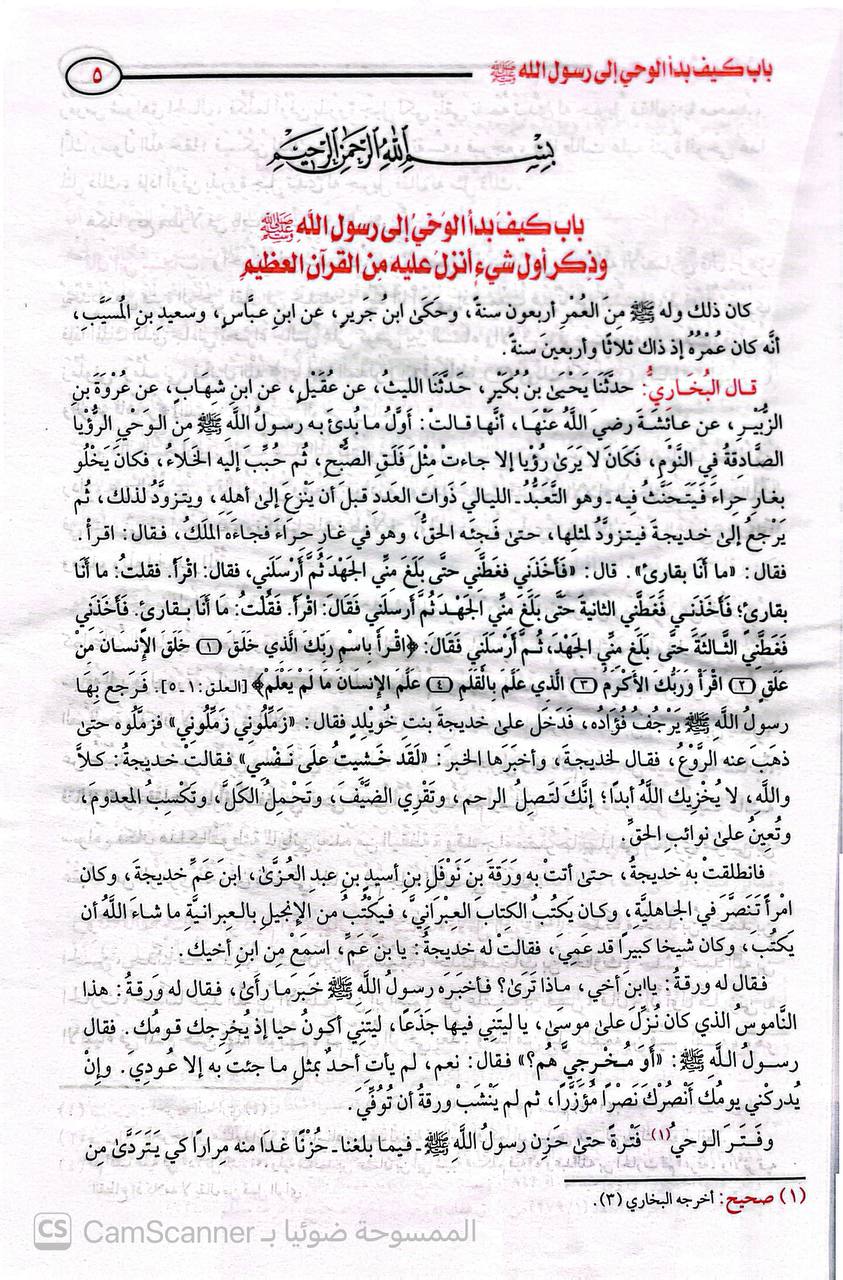 باب كيف بدأ الوحي إلى رسول الله ﷺ
٥
بِسْمِ اللَّهِ الرَّحْمَنِ الرَّحِيمِ
باب كيفَ بدأ الوَحْيُ إلى رسول اللَّهِ ﷺ
وذِكر أول شيءٍ أنزل عليه مِن القرآن العظيم
كان ذلك وله ﷺ مِنَ العُمْرِ أربعون سنةً، وحَكَىٰ ابنُ جريرٍ، عن ابنِ عبَّاسٍ، وسعيدِ بنِ المُسَيَّبِ،
أنَّه كان عُمْرُهُ إذ ذاك ثلاثًا وأربعينَ سنةً.
قال البُخَاريُّ: حدَّثَنَا يَحْيَىٰ بنُ بُكَيْرٍ، حَدَّثَنَا الليثُ، عن عُقَيْلٍ، عن ابنِ شِهَابٍ، عن عُرْوَةَ بنِ
الزُّبَيْرِ، عن عائشَةَ رضيَ اللَّهُ عَنْهَا، أنَّها قالتْ: أوَّلُ ما بُدِئَ به رسولُ اللَّهِ ﷺ منَ الوَحْيِ الرُّؤْيا
الصَّادِقةُ في النَّوْمِ، فكَانَ لا يَرَىٰ رُؤْيا إلا جاءتْ مِثْلَ فلَقِ الصُّبْحِ، ثُم حُبِّبَ إليه الخَلاءُ، فكانَ يَخْلُو
بغارِ حِراءَ فَيَتَحنَّثُ فيه ـ وهو التَّعَبُّدُ ـ الليالي ذَواتِ العَددِ قبلَ أن يَنْزِعَ إلىٰ أهلِهِ، ويتزودُ لذلك، ثُم
يَرْجِعُ إلىٰ خديجةَ فيتزودُ لمثلِها، حتىٰ فَجِئَه الحقُّ، وهو في غارِ حِرَاءَ فجاءَهُ المَلَكُ، فقال: اقرأْ.
فقال: «ما أنَا بقارِئٍ». قال: «فأَخَذَنِي فغَطَّنِي حتَّى بلَغَ منِّي الجَهْدَ ثُم أَرْسلَنِي، فقال: اقْرَأْ. فقلتُ: ما أنَا
بقارئٍ؛ فأخَذَنِي فَغَطَّنِي الثانيةَ حتَّى بَلَغَ منِّي الجَهْدَ ثُم أرسلَنِي فَقَالَ: اقرَأْ. فَقُلْتُ: مَا أَنَا بقارِئٍ. فَأَخَذَنِي
فَغَطَّنِي الثَّالثَةَ حتَّى بَلَغَ مِنِّي الجَهْدَ، ثُمَّ أَرْسَلَنِي فَقَالَ: ﴿اقْرَأْ بِاسْمِ رَبِّكَ الَّذِي خَلَقَ (١) خَلَقَ الْإِنسَانَ مِنْ
عَلَقٍ (٢) اقْرَأْ وَرَبُّكَ الْأَكْرَمُ (٣) الَّذِي عَلَّمَ بِالْقَلَمِ (٤) عَلَّمَ الْإِنسَانَ مَا لَمْ يَعْلَمْ﴾ [العلق:١ـ٥]. فَرجَعَ بِهَا
رسولُ اللَّهِ ﷺ يَرْجُفُ فُؤَادُه، فَدَخَلَ علىٰ خديجةَ بنتِ خُويْلِدٍ فقال: «زَمِّلُونِي زَمِّلُوني» فزمَّلُوه حتىٰ
ذهَبَ عنه الرَّوْعُ، فقال لخديجةَ، وأخبَرَها الخبرَ: «لَقَد خَشيتُ علَى نَـفْسِي» فقالتْ خديجةُ: كلاَّ
واللَّهِ، لا يُخْزِيك اللَّهُ أبدًا؛ إنَّكَ لتَصِلُ الرحِم، وتَقْرِي الضَّيْفَ، وتَحْمِلُ الكَلَّ، وتَكْسِبُ المعدومَ،
وتُعِينُ علىٰ نوائبِ الحقِّ.
فانطلقتْ به خديجةُ، حتىٰ أتتْ به وَرَقةَ بنَ نَوْفَلِ بنِ أسيدِ بنِ عبدِ العُزَّىٰ، ابنَ عَمِّ خديجةَ، وكان
امْرأً تَنَصَّرَ في الجاهليَّةِ، وكان يَكتُبُ الكِتابَ العِبْرَانِيَّ، فيَكْتُبُ من الإنجيلِ بالعِبرانيةِ ما شاءَ اللَّهُ أن
يَكتُبَ، وكان شيخًا كبيرًا قد عَمِيَ، فقالتْ له خديجةُ: يا بنَ عَمِّ، اسمَعْ مِن ابنِ أخيك.
فقال له ورقةُ: ياابنَ أخي، ماذا تَرَىٰ؟ فأخبَره رسولُ اللَّهِ ﷺ خَبرَ ما رأىٰ، فقال له ورقةُ: هذا
النَّاموسُ الذي كان نُزِّلَ علىٰ موسَىٰ، يا ليتَنِي فيها جَذَعًا، ليتَنِي أكونُ حيا إذ يُخرِجك قومُك. فقال
رسولُ اللَّهِ ﷺ: «أَوَ مُخْرِجيَّ هُم؟» فقال: نعم، لم يأتِ أحدٌ بمثلِ ما جئتَ به إلا عُودِيَ. وإنْ
يُدركْني يومُك أَنْصُرْكَ نَصْرًا مُؤَزَّرًا، ثم لم يَنْشَبْ ورقةُ أن تُوُفِّيَ.
وفَتَرَ الوحيُ(١) فَتْرةً حتىٰ حَزِن رسولُ اللَّهِ ﷺ ـ فيما بلغنا ـ حُزْنًا غدَا منه مِرارًا كي يَتَردَّىٰ مِن
(١) صحيح: أخرجه البخاري (٣).
CS CamScanner الممسوحة ضوئيا بـ